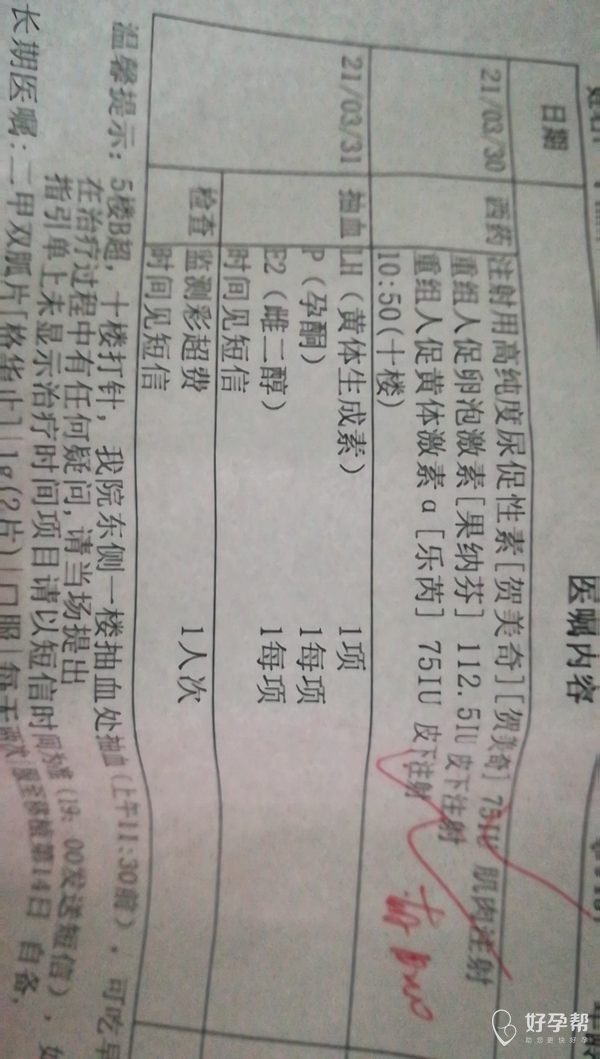 日期
医嘱内容
21/03/30
西药
注射用高纯度尿促性素[贺美奇][贺美奇] 75IU 肌肉注射
重组人促卵泡激素[果纳芬] 112.5IU 皮下注射
重组人促黄体激素α[乐芮] 75IU 皮下注射
10:50(十楼)
21/03/31
抽血
LH（黄体生成素） 1项
P（孕酮） 1每项
E2（雌二醇） 1每项
时间见短信
检查
监测彩超费 1人次
时间见短信
温馨提示：5楼B超，十楼打针，我院东侧一楼抽血处抽血(上午11:30前)，可吃早
在治疗过程中有任何疑问,请当场提出
指引单上未显示治疗时间项目请以短信时间为准（19：00发送短信），如
长期医嘱:二甲双胍片[格华止]|1g(2片)|口服|每天 第14日 自备,
好孕帮
助您更快好孕